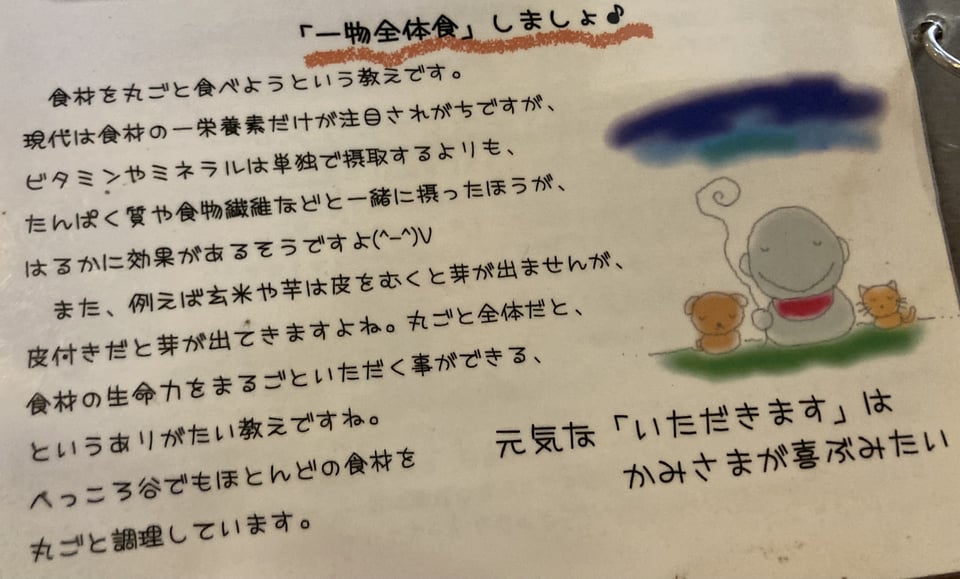 「一物全体食」しましょ♪
食材を丸ごと食べようという教えです。
現代は食材の一栄養素だけが注目されがちですが、
ビタミンやミネラルは単独で摂取するよりも、
たんぱく質や食物繊維などと一緒に摂ったほうが、
はるかに効果があるそうですよ(^-^)V
また、例えば玄米や芋は皮をむくと芽が出ませんが、
皮付きだと芽が出てきますよね。丸ごと全体だと、
食材の生命力をまるごといただく事ができる、
というありがたい教えですね。
べっころ谷でもほとんどの食材を
丸ごと調理しています。
元気な「いただきます」は
かみさまが喜ぶみたい